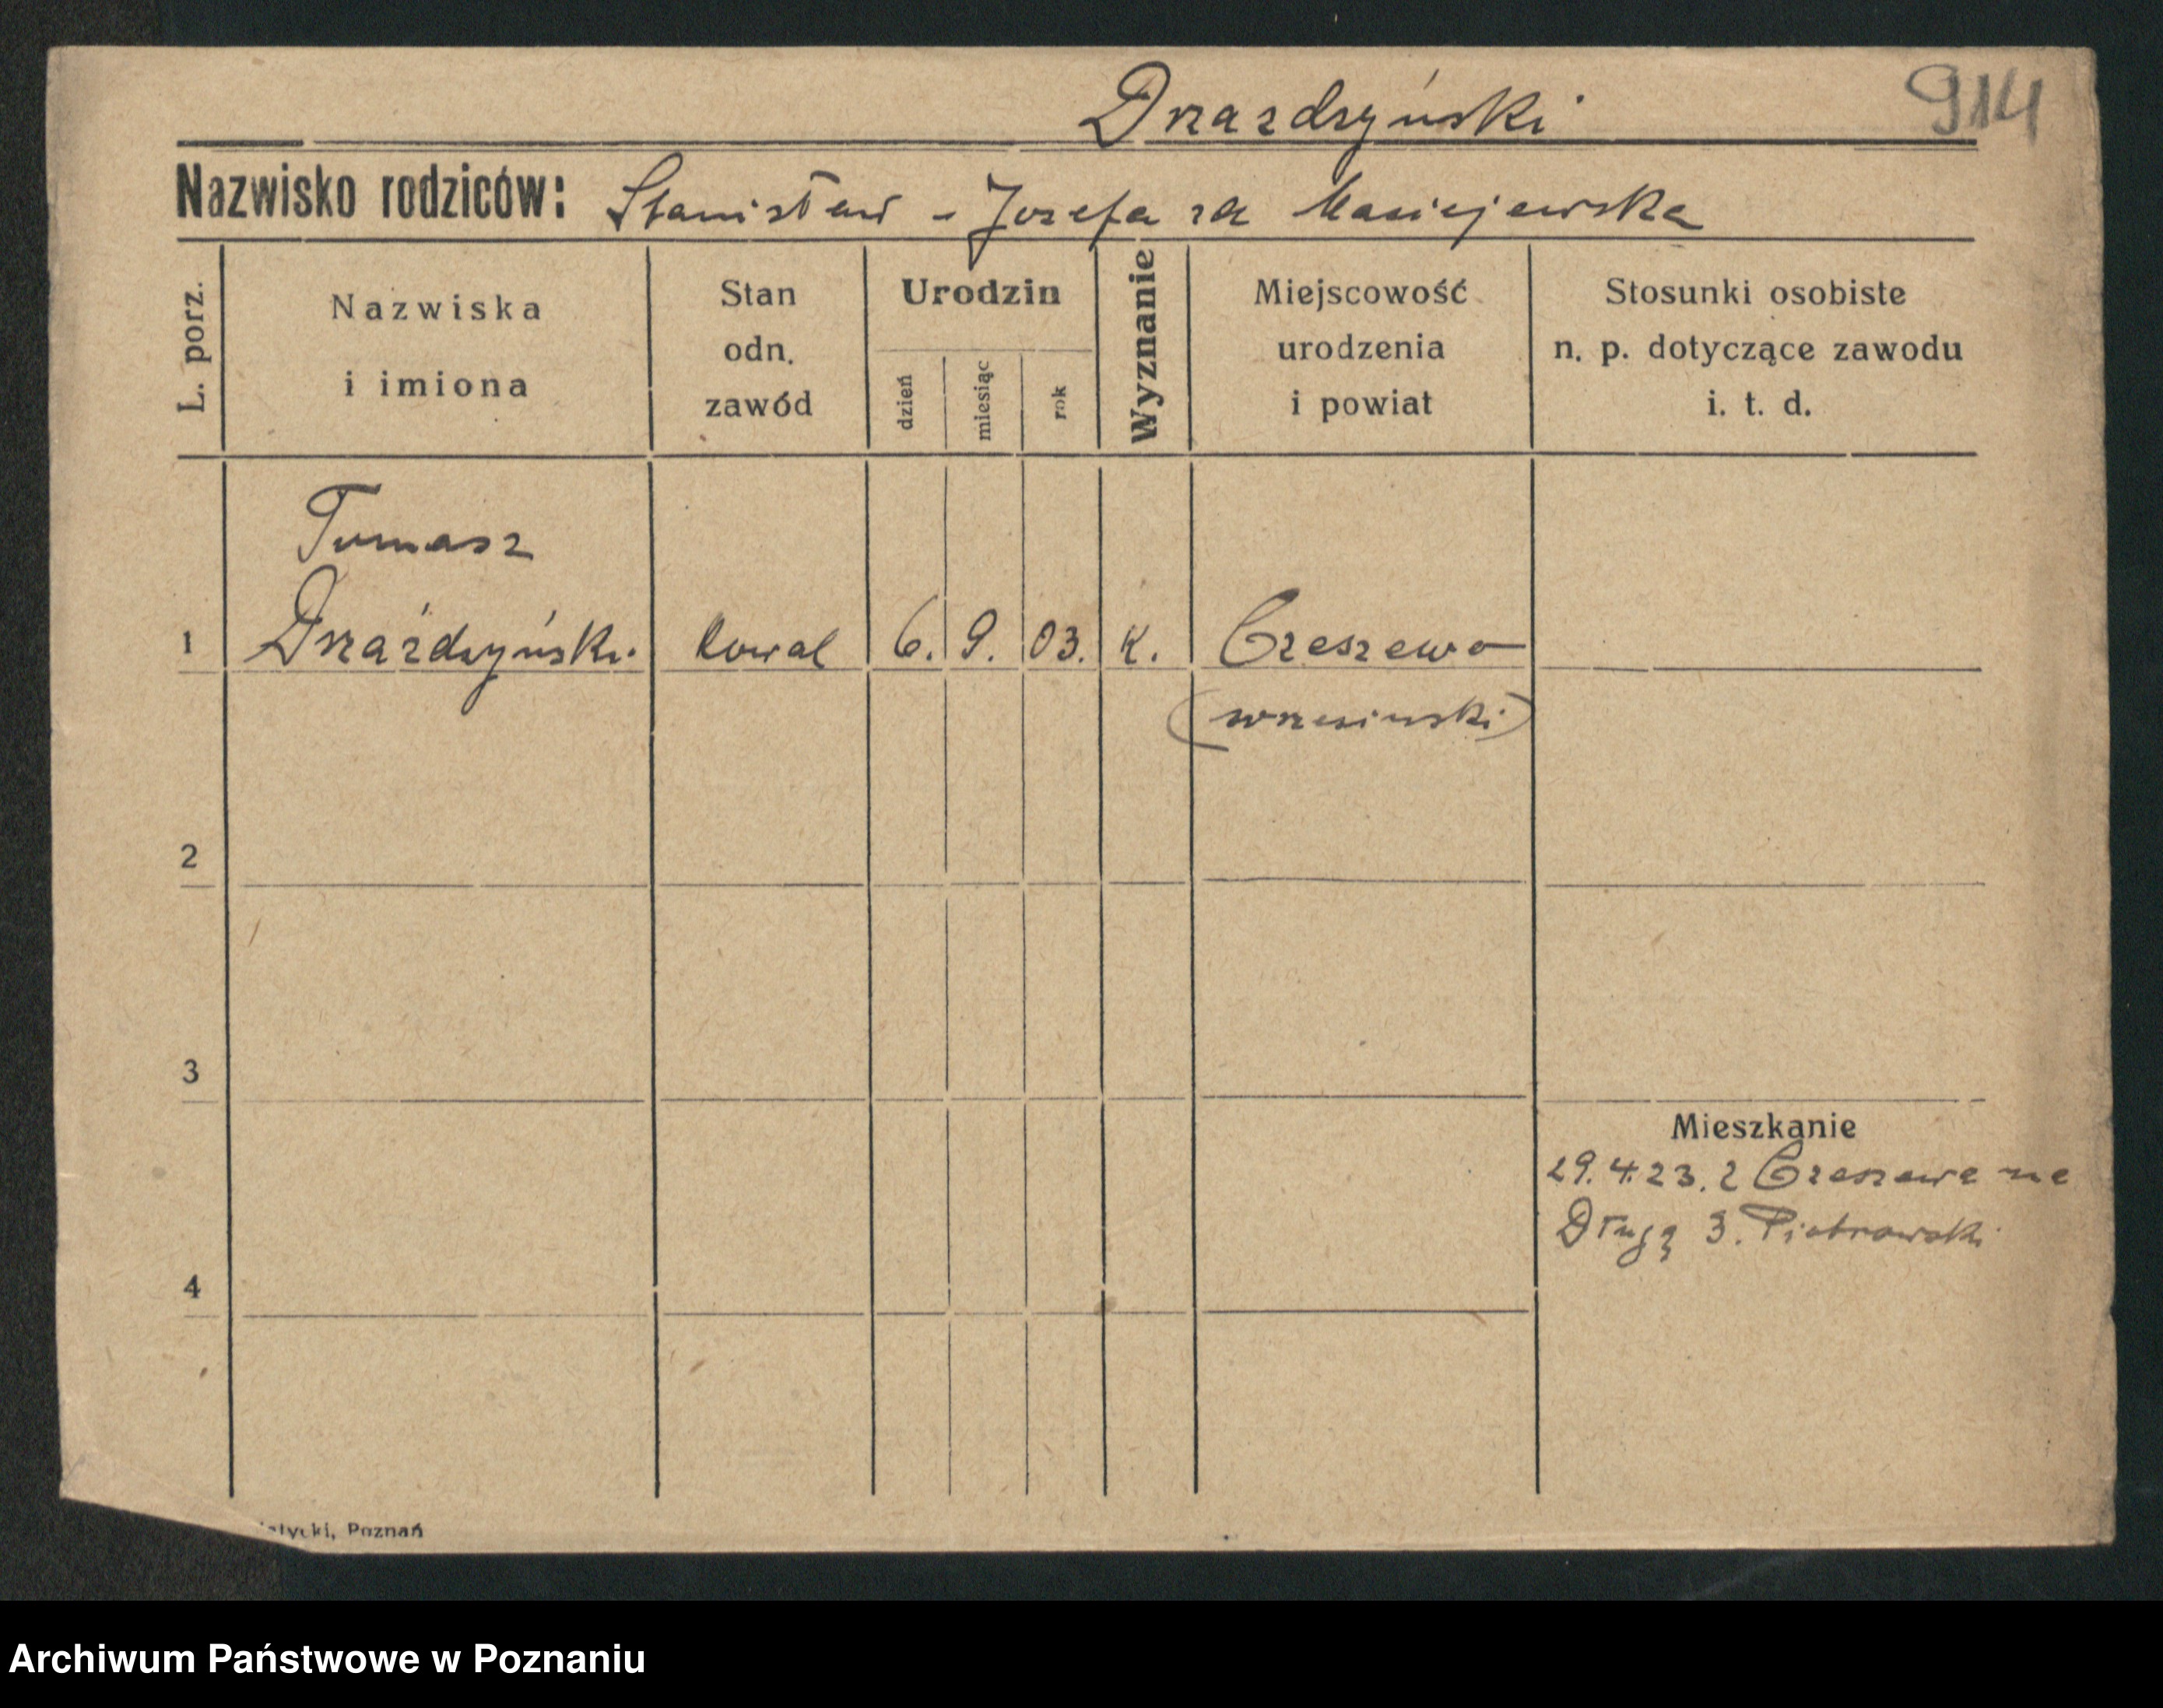 Drzazdzyński
914
Nazwisko rodziców: Stanisław - Jozefa zd Maciejewska
L. porz.
Nazwiska
i imiona
Stan
odn.
zawód
Urodzin
dzień
miesiąc
rok
Wyznanie
Miejscowość
urodzenia
i powiat
Stosunki osobiste
n. p. dotyczące zawodu
i. t. d.
Tomasz
1 Drzażdzyński kowal 6. 9. 03. K. Czeszewo
(wrzesinski)
2
3
Mieszkanie
29.4.23. z Czeszewa na
Długą 3. Piotrowski
4
Poznań
Archiwum Państwowe w Poznaniu